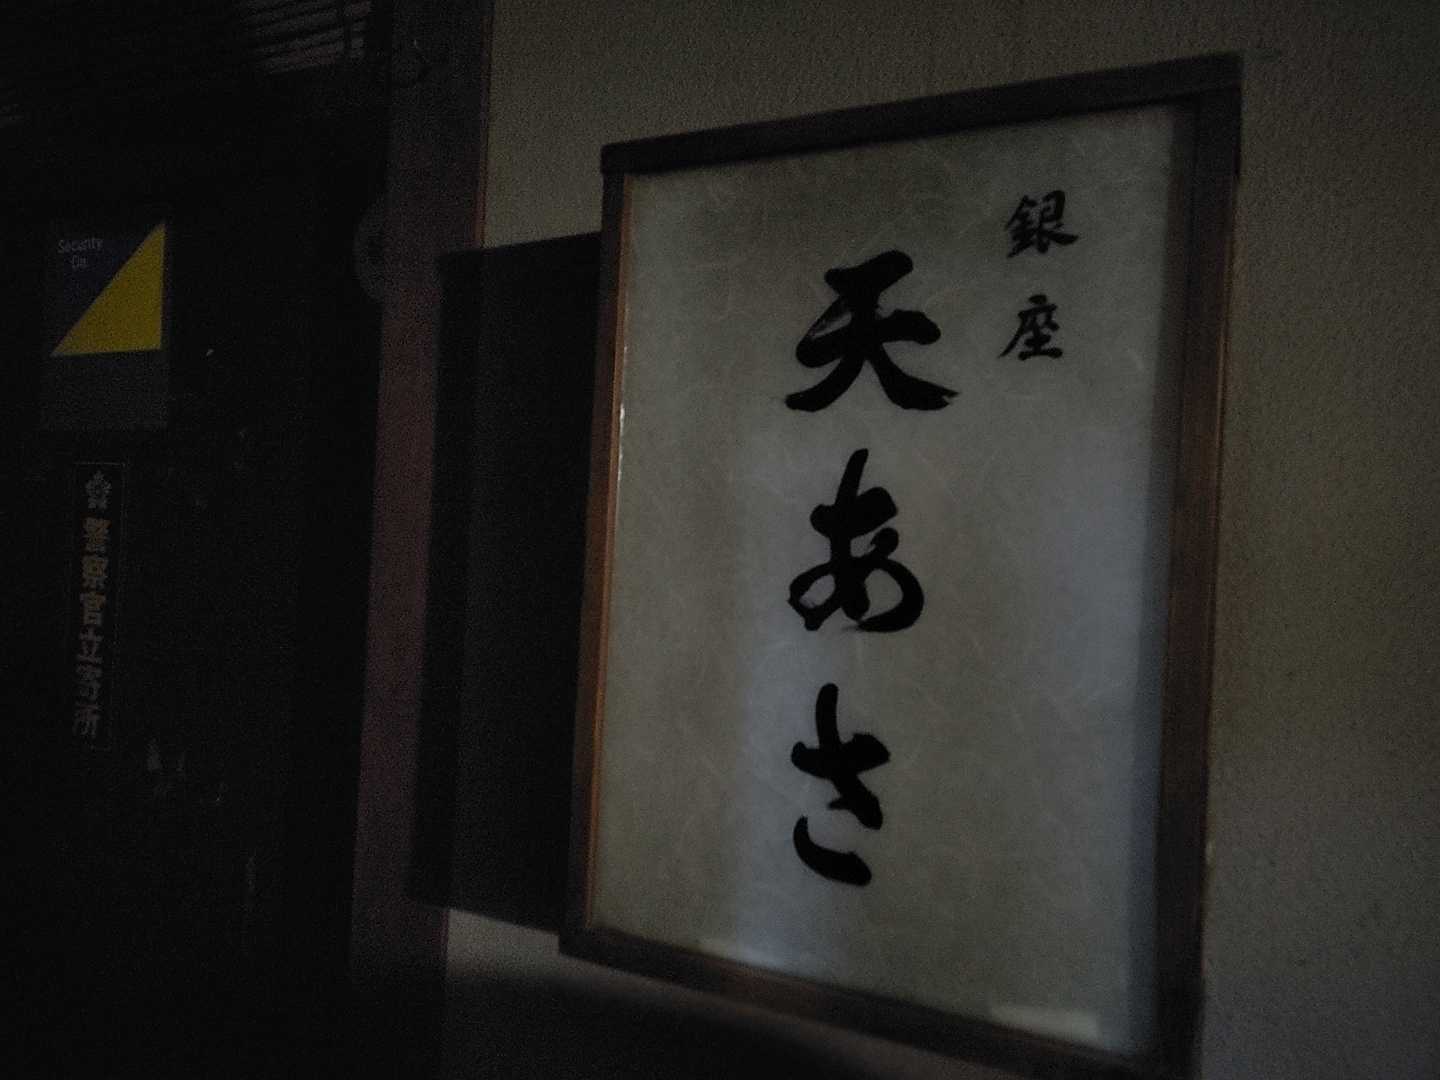 銀座
天あさ
Security
On
警察官立寄所